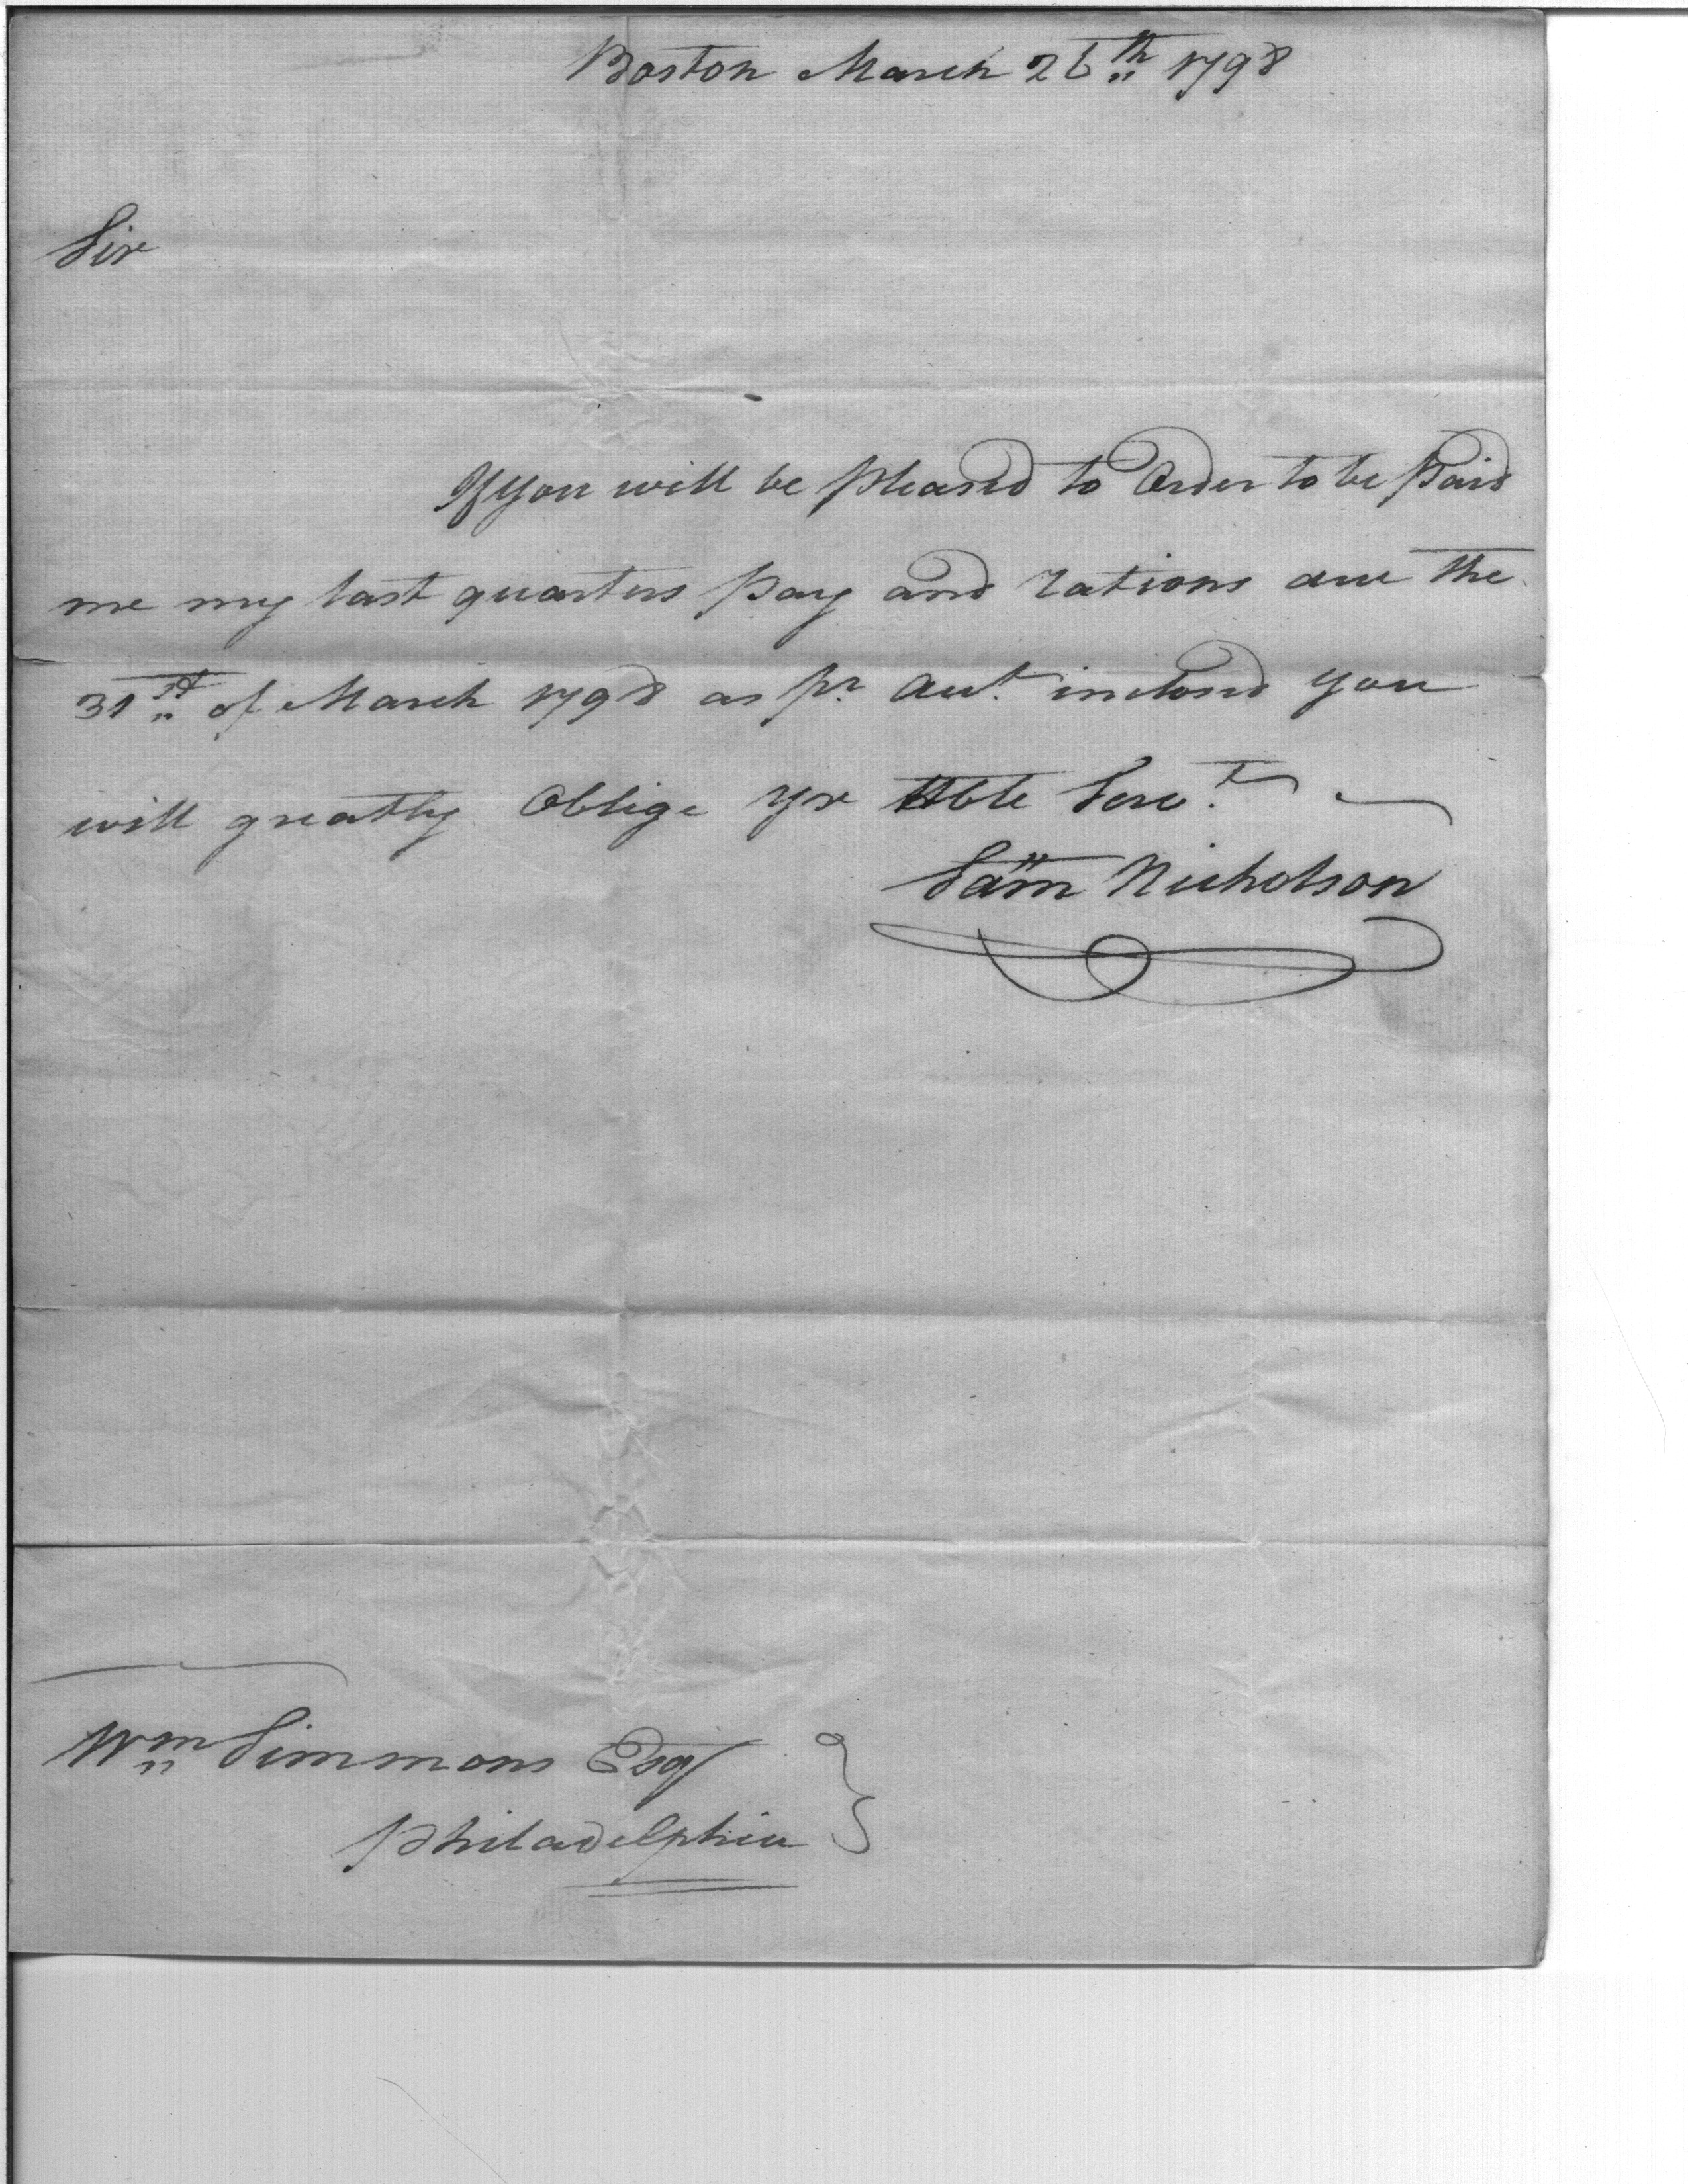 Boston March 26th 1798
Sir
If you will be pleased to Order to be paid
me my last quarters pay and rations due the
31st of March 1798 as pr Acct. inclosed you
will greatly Oblige yr Hble Servt.
Sam Nicholson
Wm Simmons Esqr
Philadelphia